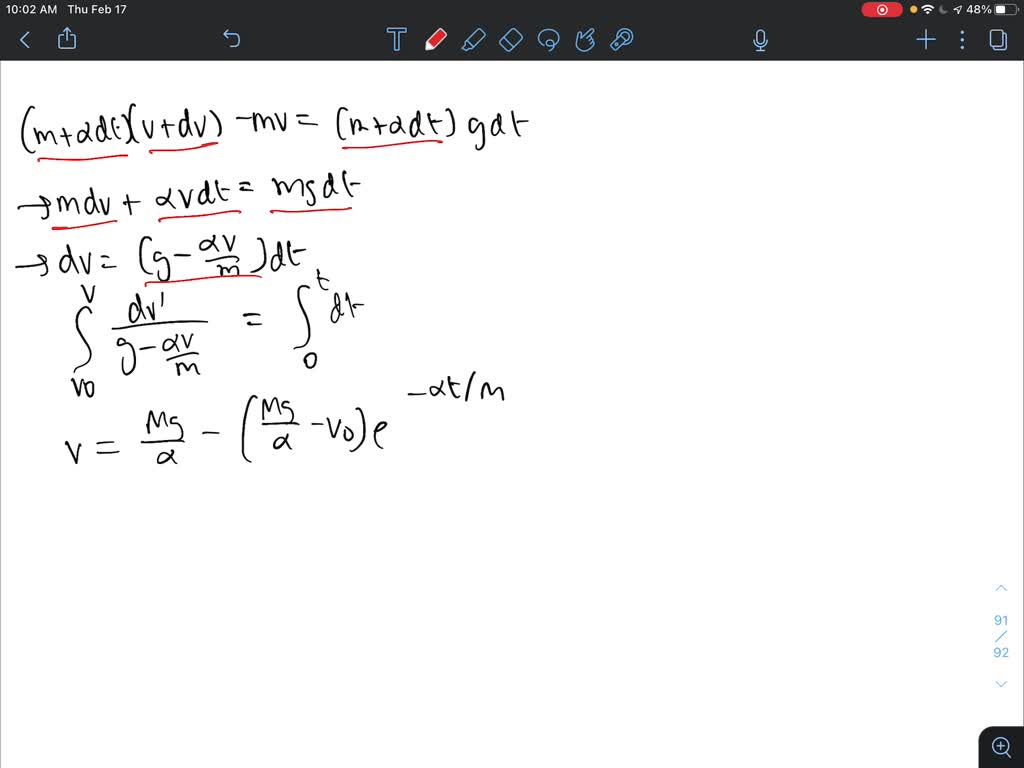 10:02 AM Thu Feb 17
48%
T
(m+αdt)(v+dv) -mv = (m+αdt) gdt
→ mdv + αvdt = mgdt
→ dv = (g - αv/m)dt
∫_{v0}^{v} dv'/(g - αv/m) = ∫_{0}^{t} dt
v = Mg/α - (Mg/α - v0)e^{-αt/m}
91
/
92